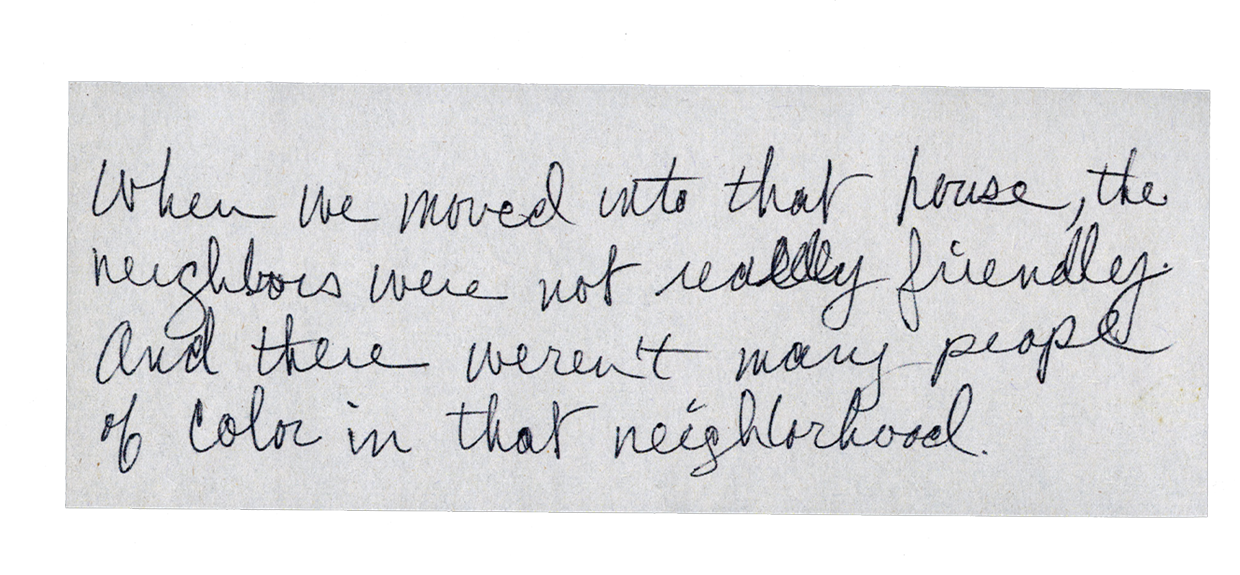 When we moved into that house, the
neighbors were not really friendly.
And there weren't many people
of color in that neighborhood.